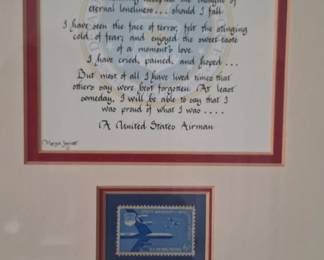 eternal loneliness... should I fall.
I have seen the face of terror; felt the stinging
cold of fear; and enjoyed the sweet taste
of a moment's love.
I have cried, pained, and hoped...
But most of all I have lived times that
others say were best forgotten. At least
someday, I will be able to say that I
was proud of what I was....
A United States Airman